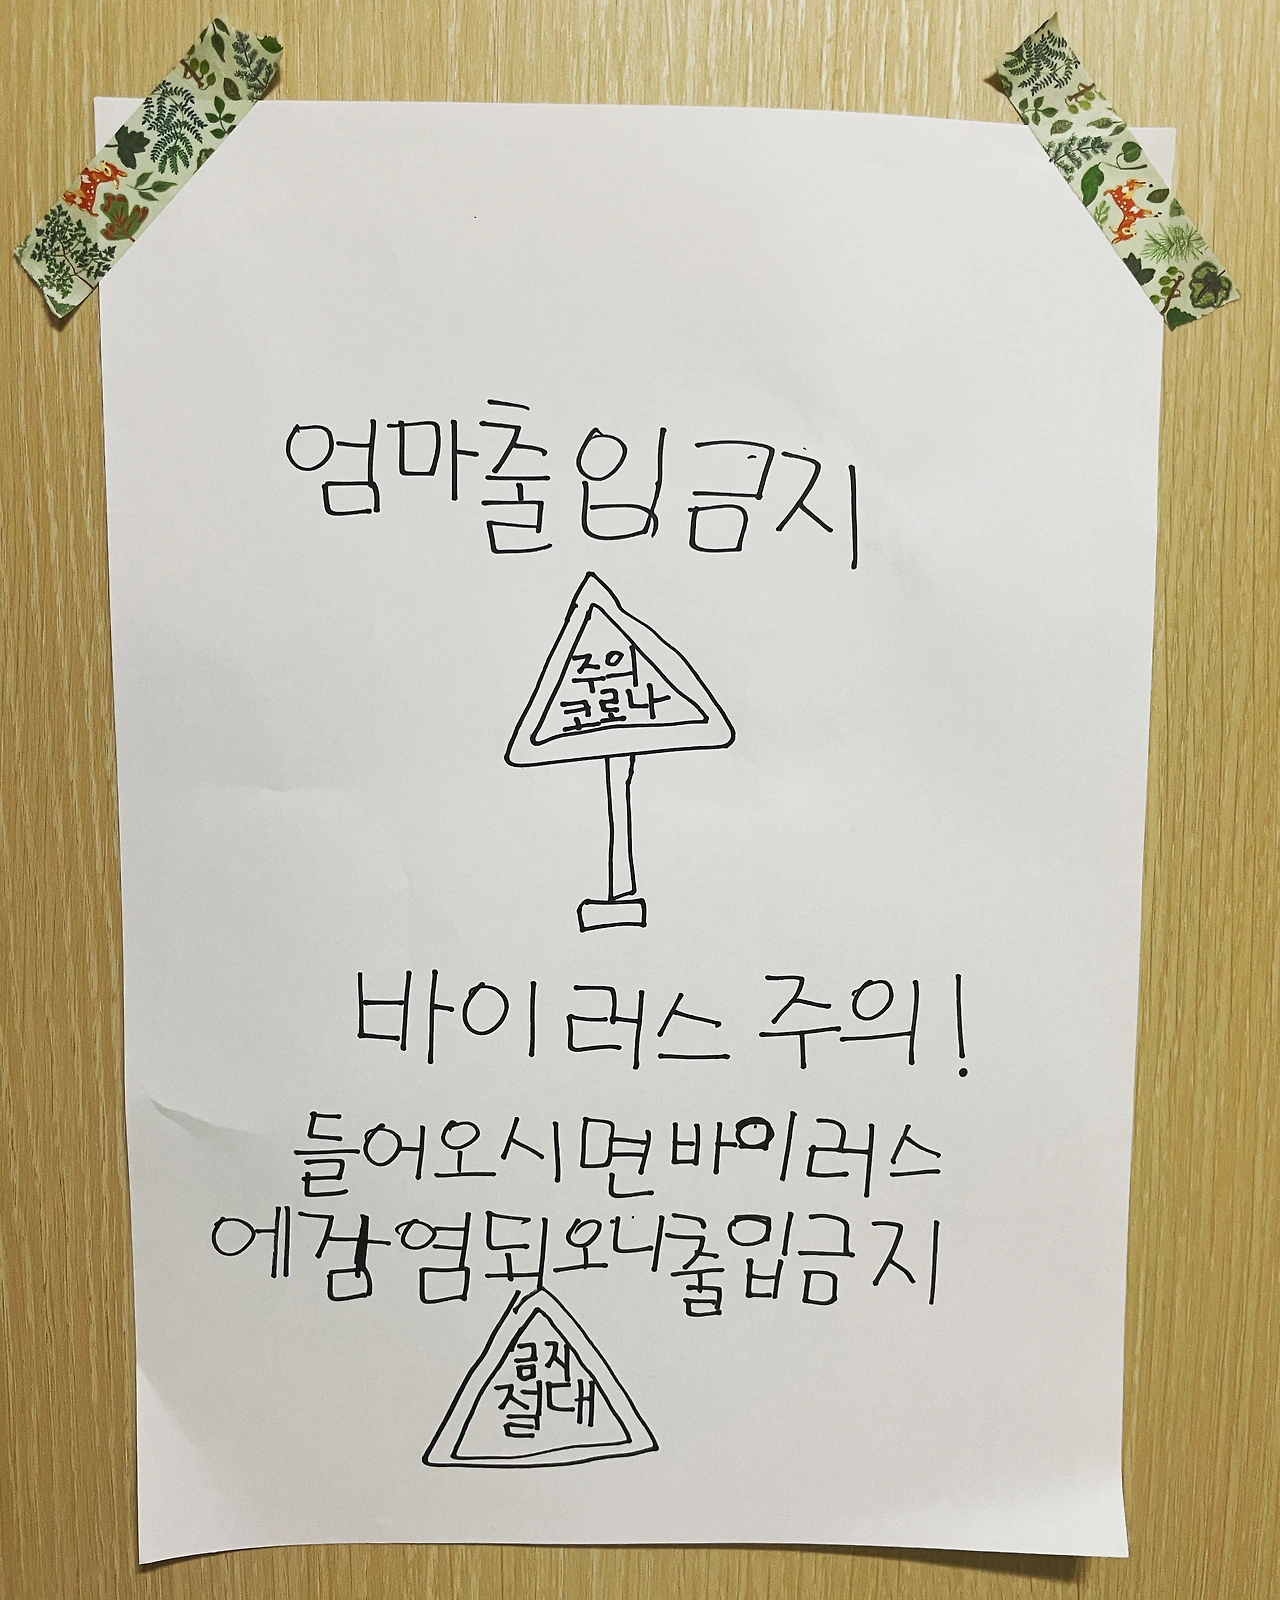 엄마출입금지
주의
코로나
바이러스 주의!
들어오시면바이러스
에감염되오니출입금지
금지
절대